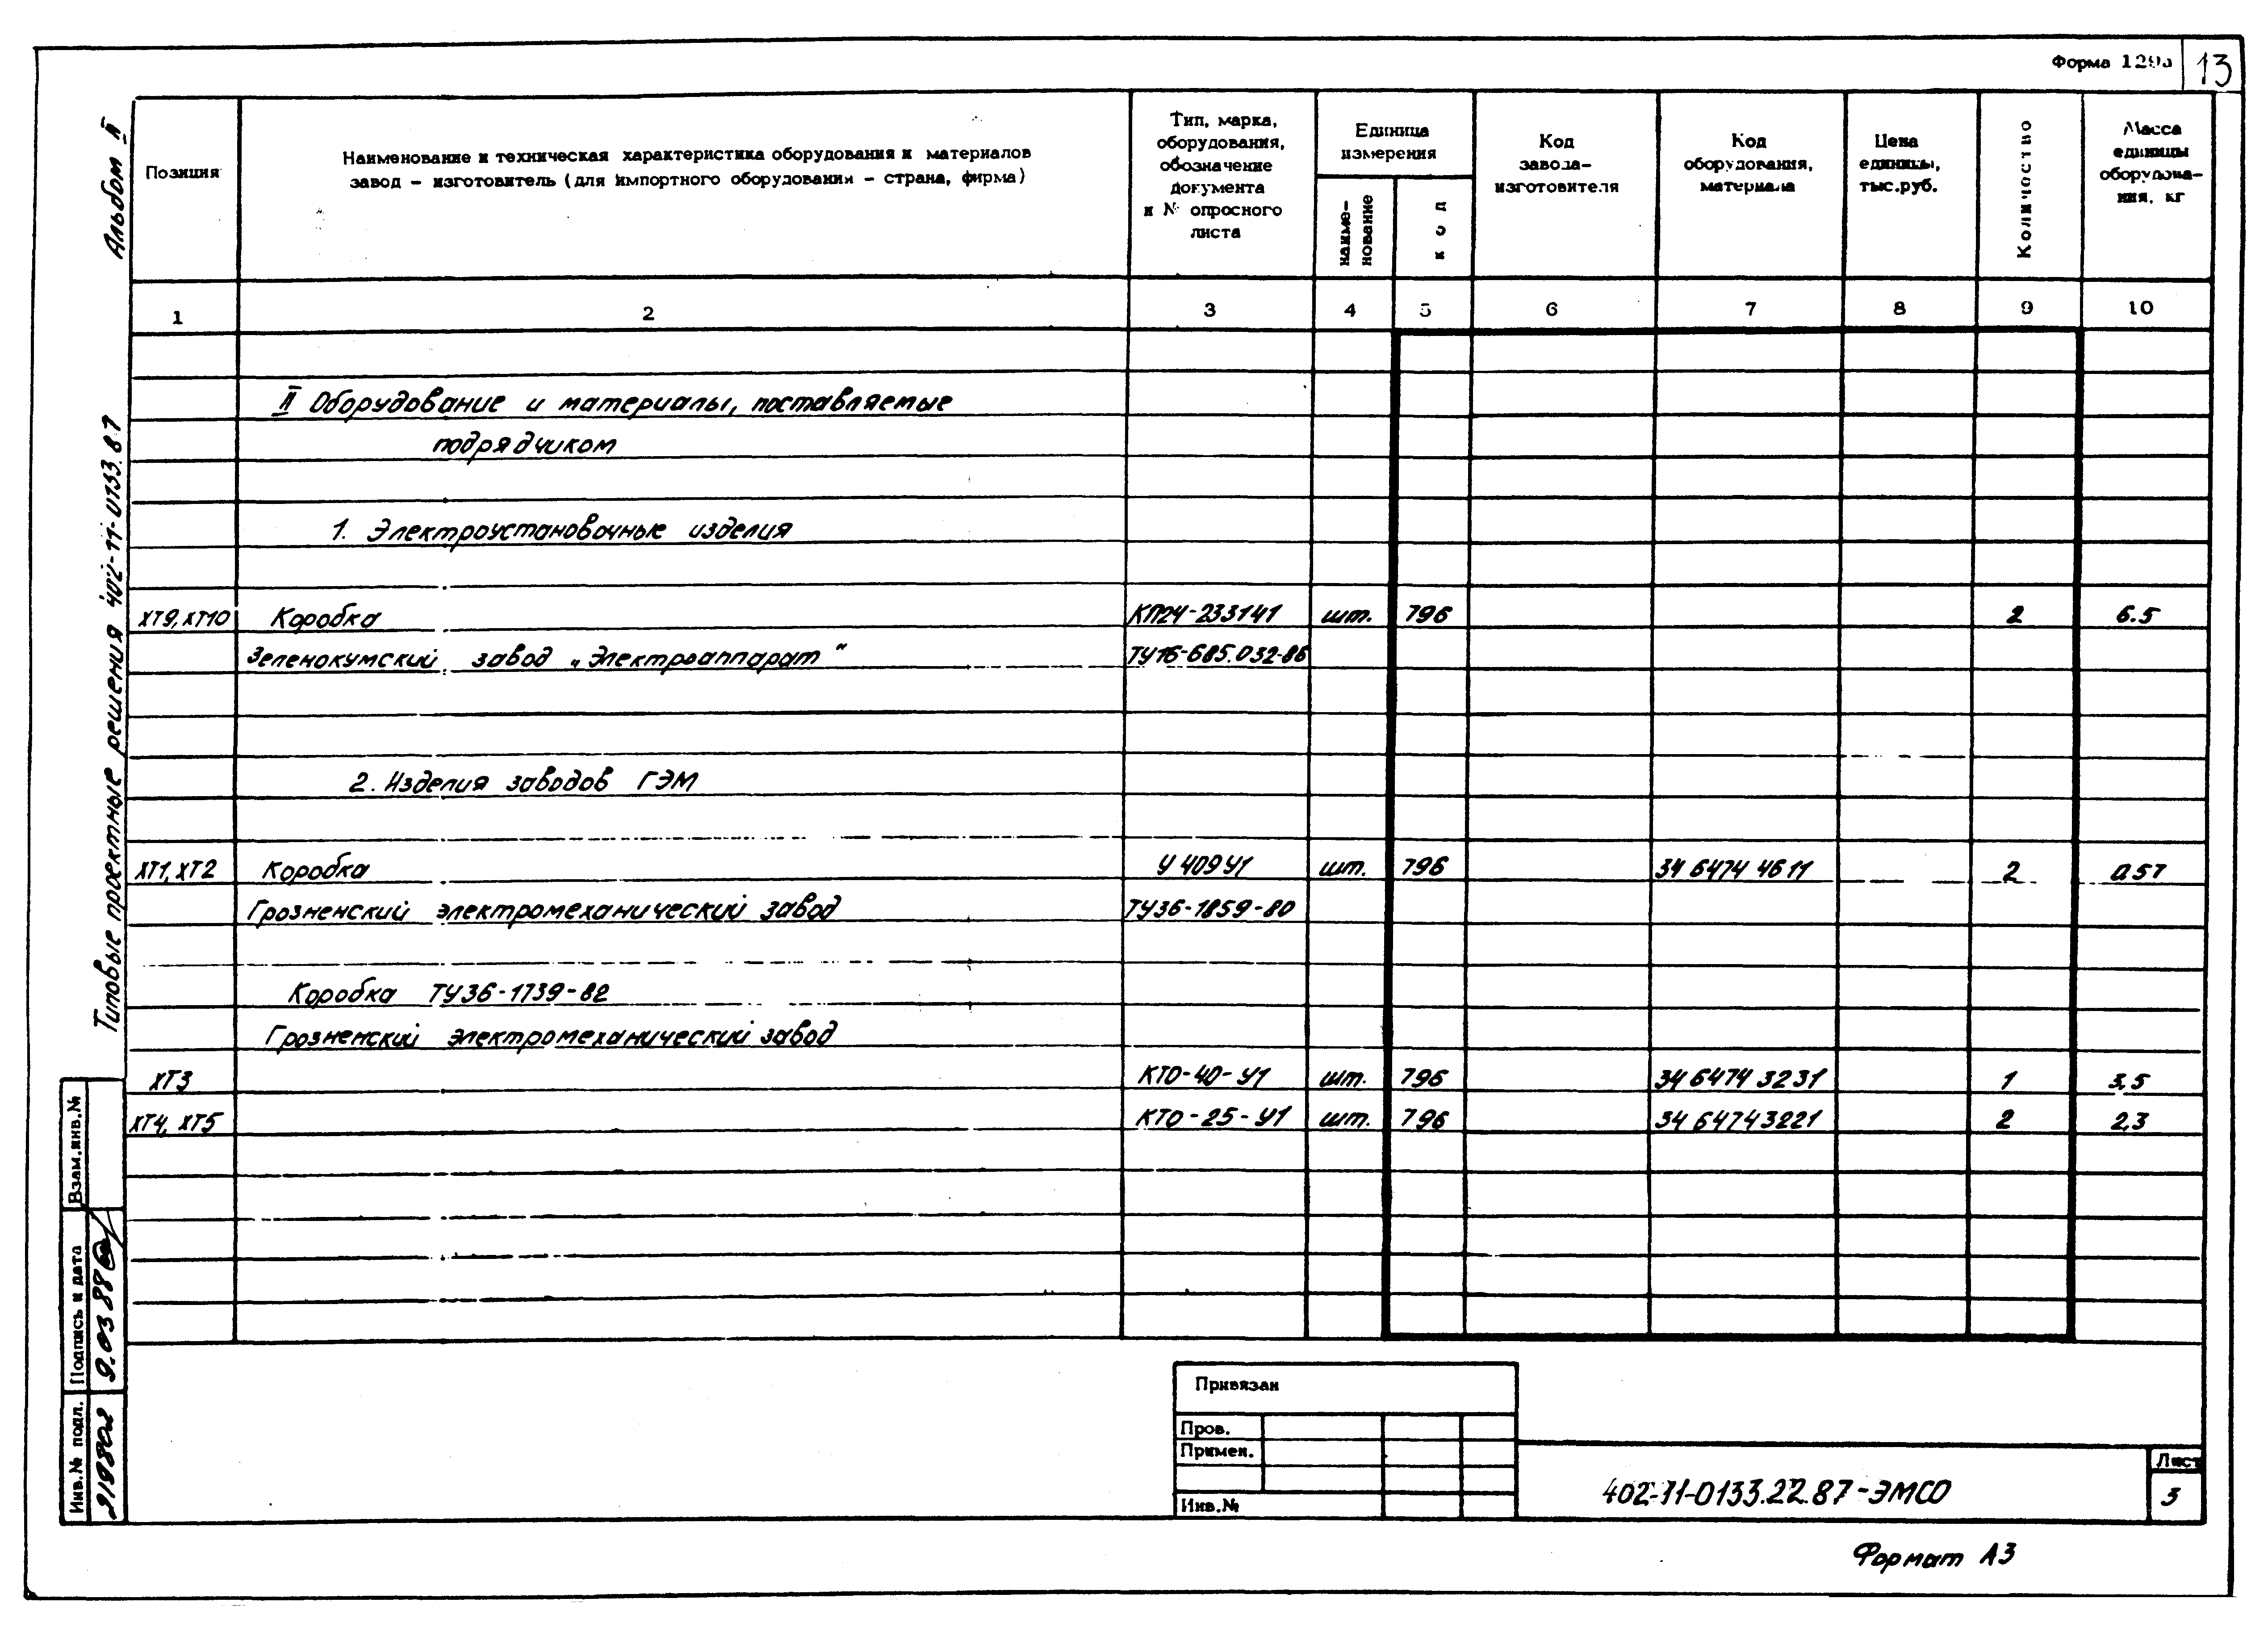 Форма 129а
13
Альбом II
Типовые проектные решения 402-11-0133.87
Позиция
Наименование и техническая характеристика оборудования и материалов
завод – изготовитель (для импортного оборудования – страна, фирма)
Тип, марка,
оборудования,
обозначение
документа
и № опросного
листа
Единица
измерения
наиме-
нование
код
Код
завода-
изготовителя
Код
оборудования,
материала
Цена
единицы,
тыс.руб.
Количество
Масса
единицы
оборудова-
ния, кг
1 2 3 4 5 6 7 8 9 10
II Оборудование и материалы, поставляемые
подрядчиком
1. Электроустановочные изделия
ХТ9, ХТ10 Коробка КП24-233141 шт. 796 2 6.5
Зеленокумский завод „Электроаппарат“ ТУ16-685.032-86
2. Изделия заводов ГЭМ
ХТ1, ХТ2 Коробка У 409 У1 шт. 796 34 6474 4611 2 0.57
Грозненский электромеханический завод ТУ36-1859-80
Коробка ТУ36-1739-82
Грозненский электромеханический завод
ХТ3 КТО-40-У1 шт. 796 34 6474 3231 1 3,5
ХТ4, ХТ5 КТО-25-У1 шт. 796 34 6474 3221 2 2,3
Взам.инв.№
Подпись и дата
9.03.88
Инв.№ подл.
Привязан
Пров.
Примен.
Инв.№
402-11-0133.22.87-ЭМСО
Лист
3
Формат А3